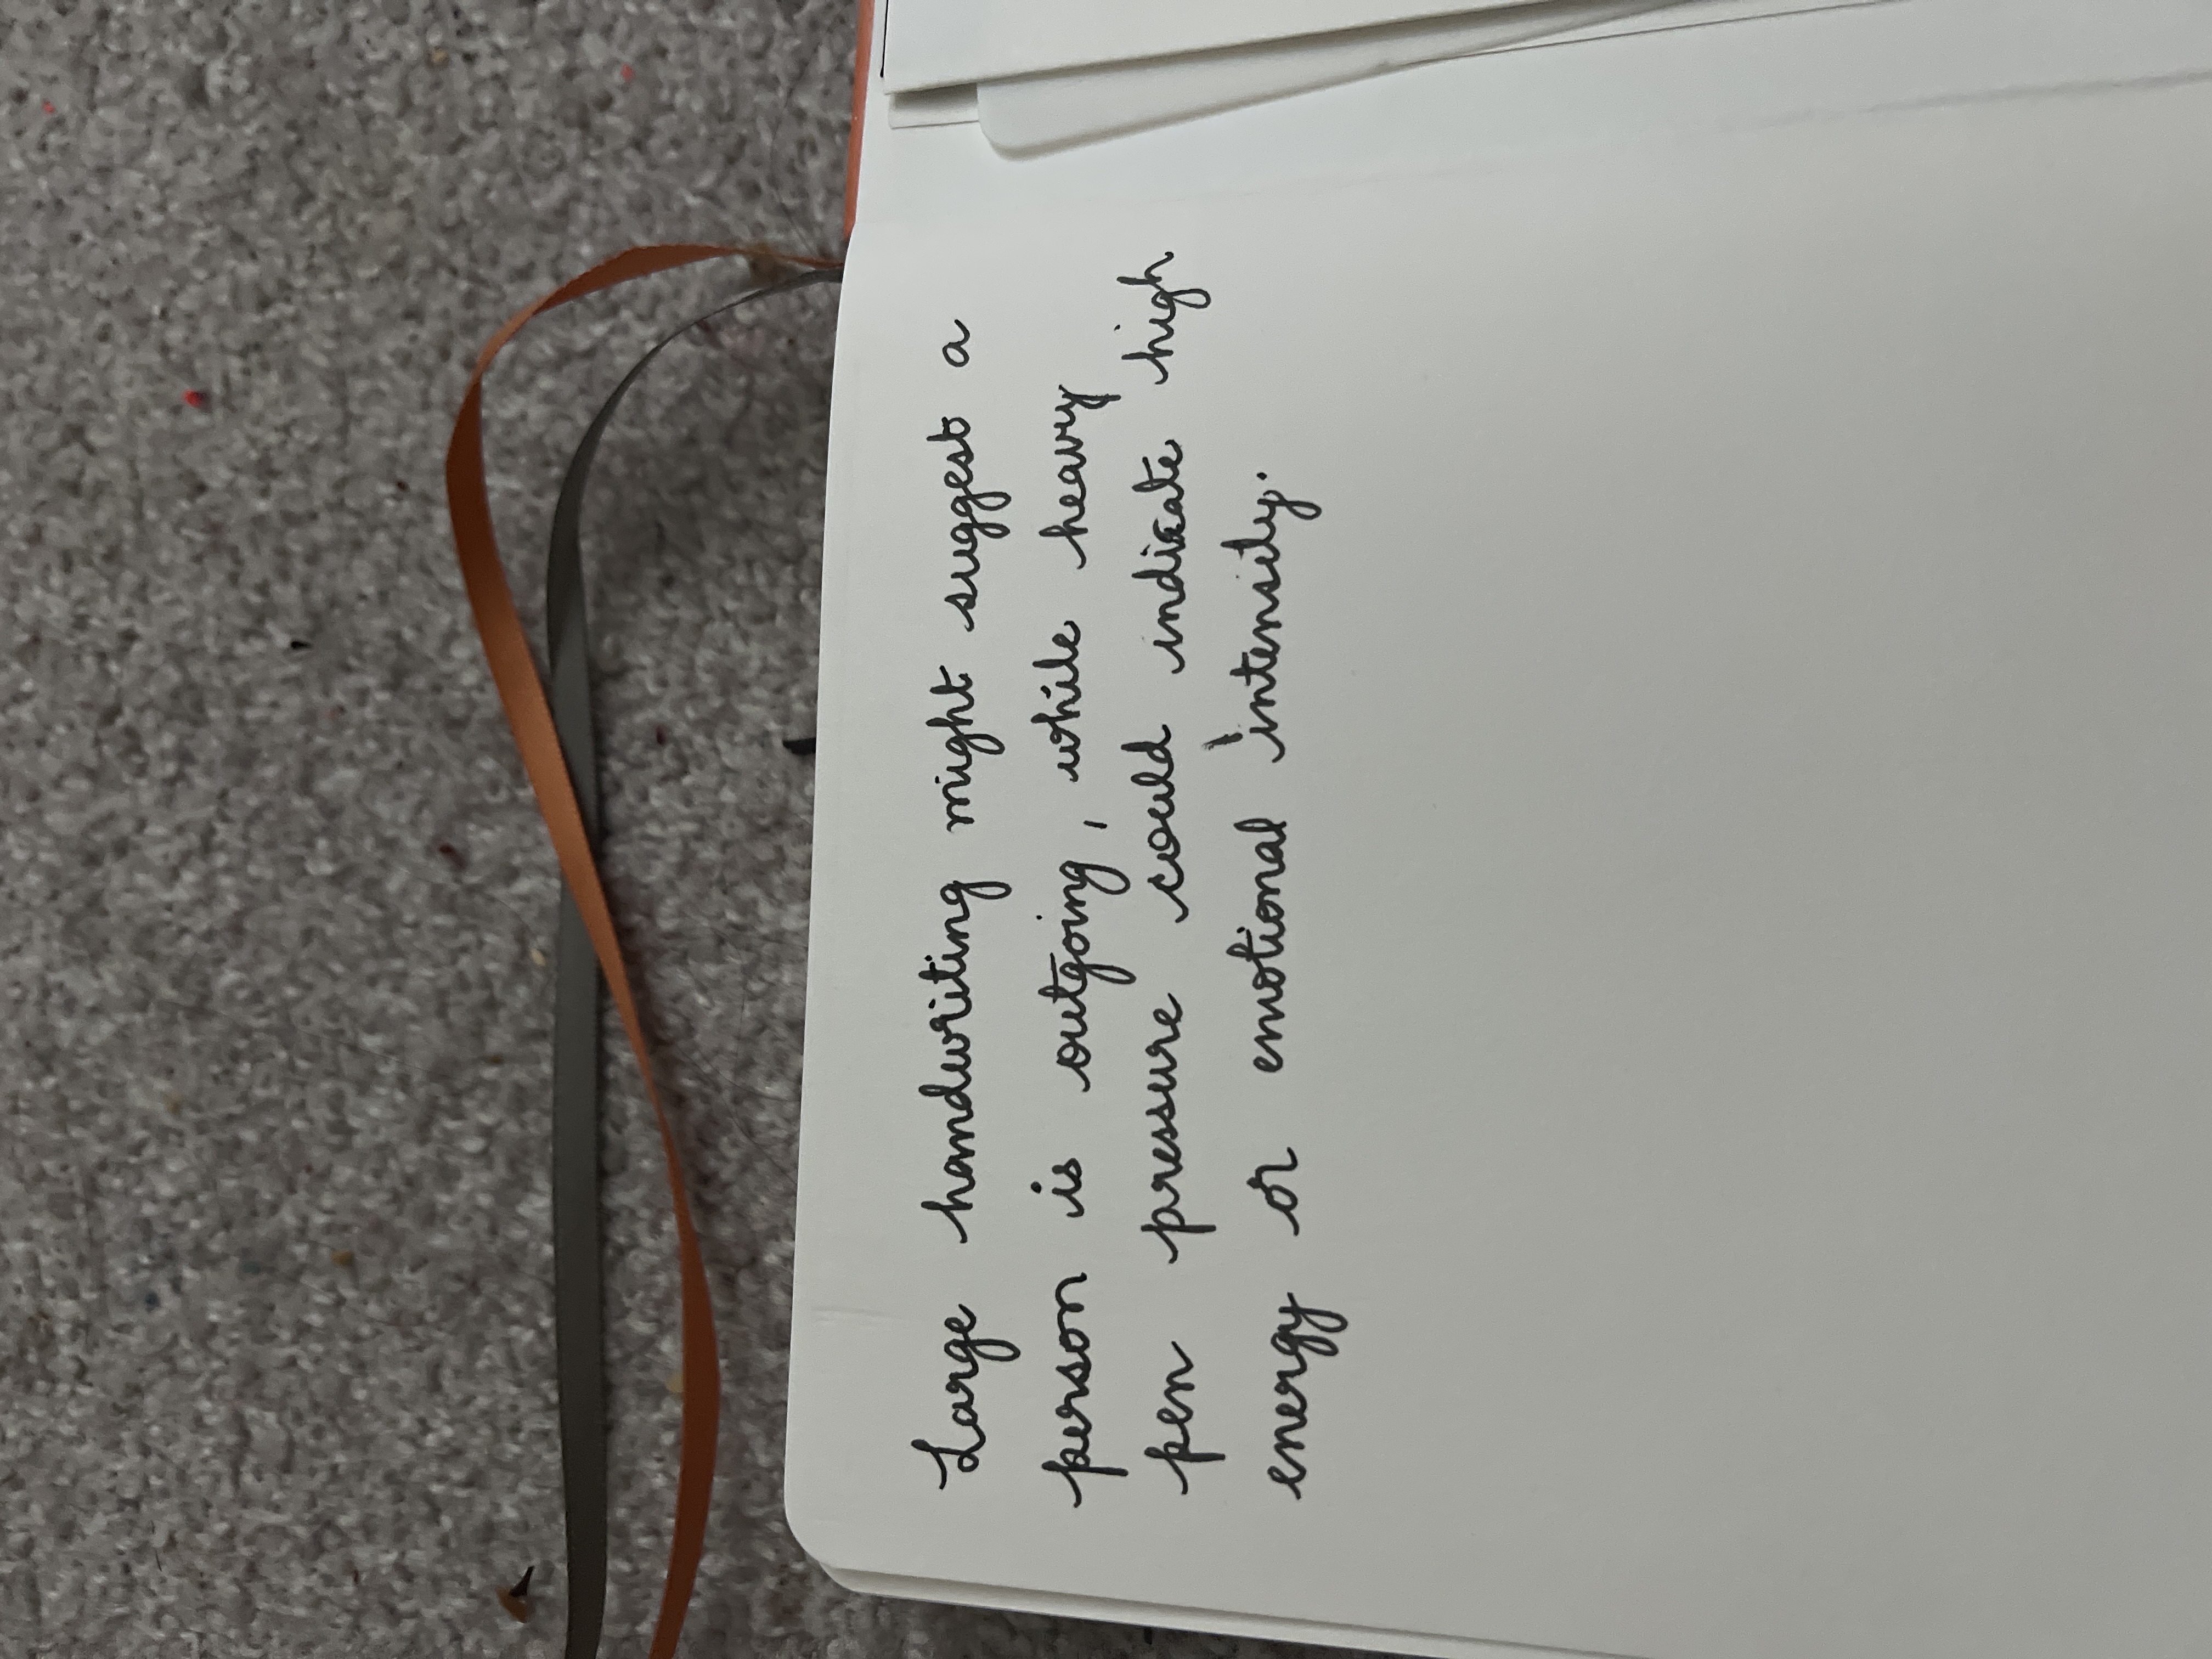 Large handwriting might suggest a
person is outgoing, while heavy
pen pressure could indicate high
energy or emotional intensity.